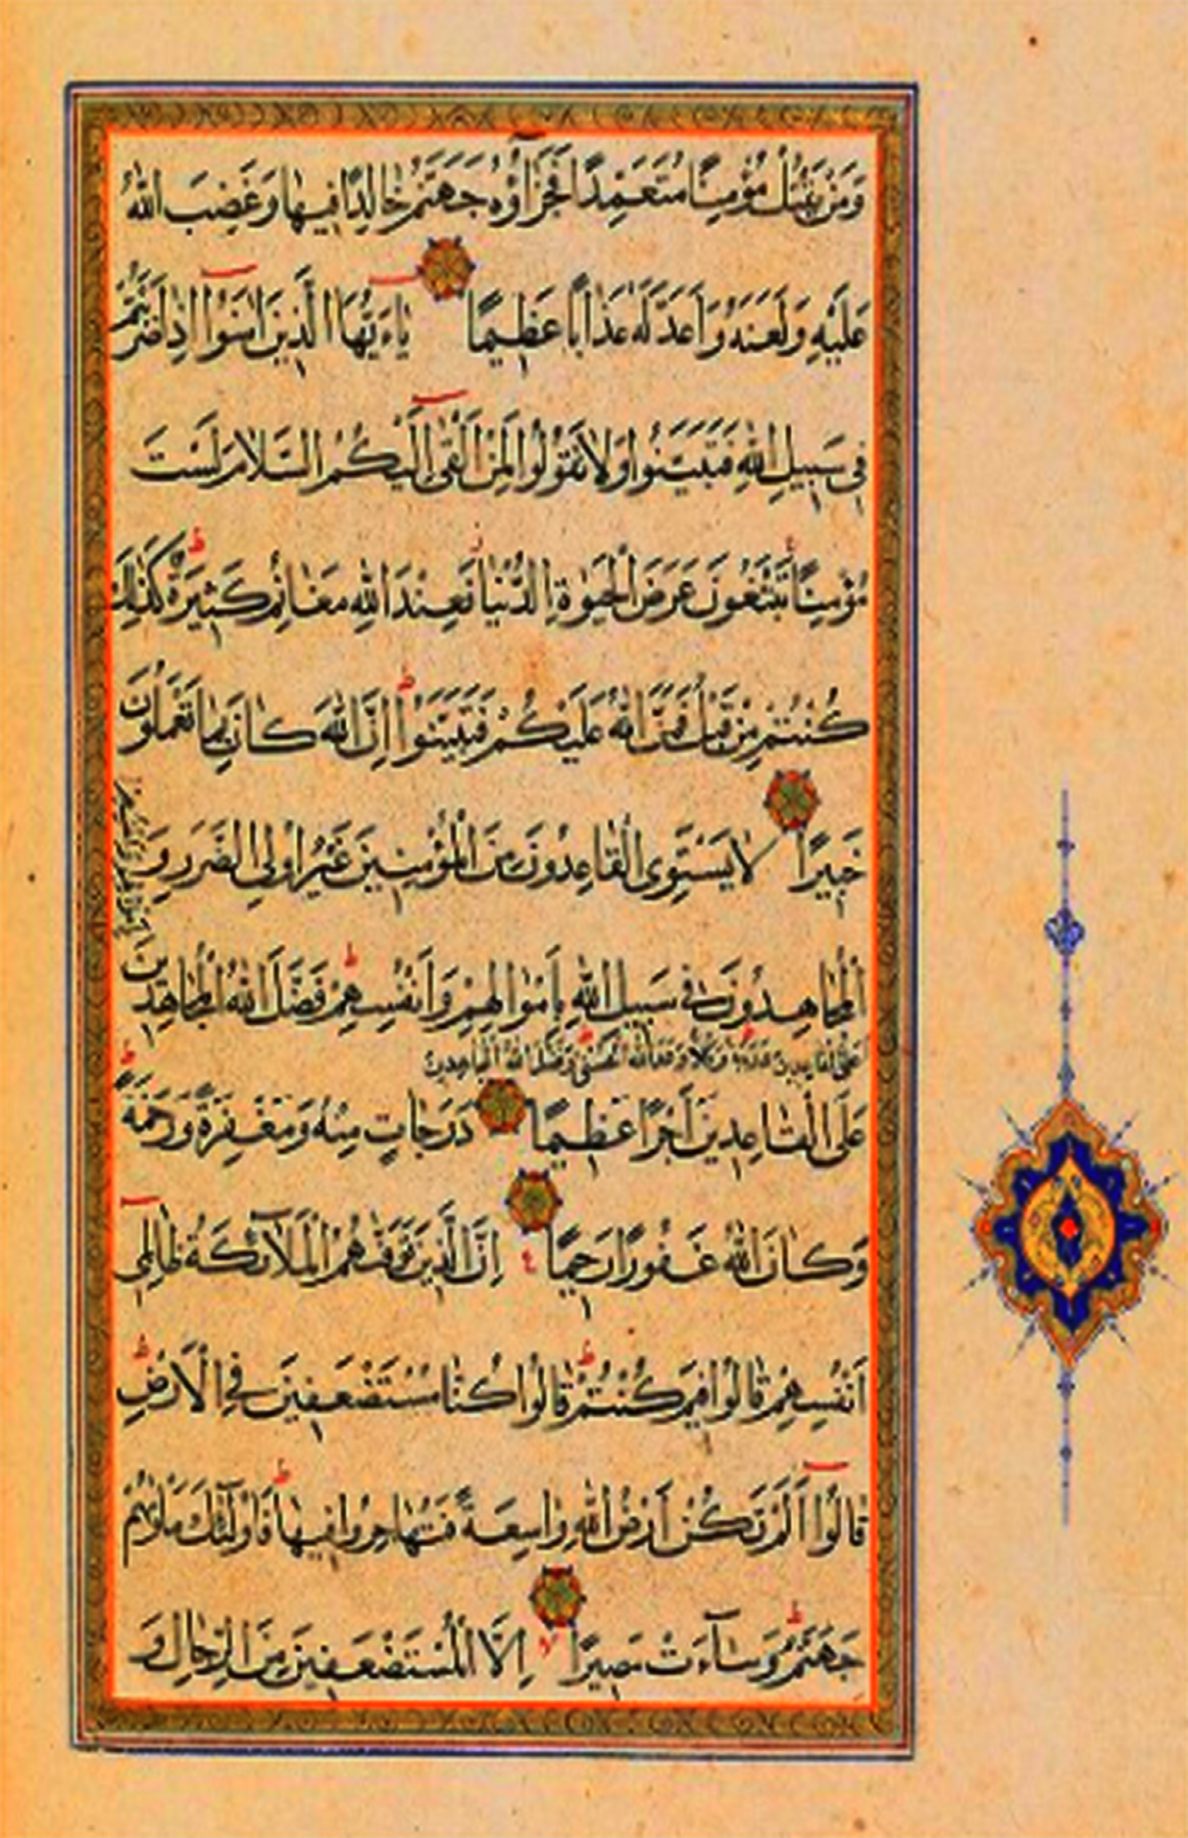 وَمَنْ يَقْتُلْ مُؤْمِنًا مُتَعَمِّدًا فَجَزَآؤُهُ جَهَنَّمُ خَالِدًا فِيهَا وَغَضِبَ اللّٰهُ
عَلَيْهِ وَلَعَنَهُ وَاَعَدَّ لَهُ عَذَابًا عَظِيمًا يٰاءَيُّهَا الَّذِينَ اٰمَنُوٓا اِذَا ضَرَبْتُمْ
فِى سَبِيلِ اللّٰهِ فَتَبَيَّنُوا وَلَا تَقُولُوا لِمَنْ اَلْقٰى اِلَيْكُمُ السَّلَامَ لَسْتَ
مُؤْمِنًا تَبْتَغُونَ عَرَضَ الْحَيٰوةِ الدُّنْيَا فَعِنْدَ اللّٰهِ مَغَانِمُ كَثِيرَةٌ كَذٰلِكَ
كُنْتُمْ مِنْ قَبْلُ فَمَنَّ اللّٰهُ عَلَيْكُمْ فَتَبَيَّنُوٓا اِنَّ اللّٰهَ كَانَ بِمَا تَعْمَلُونَ
خَبِيرًا لَا يَسْتَوِى الْقَاعِدُونَ مِنَ الْمُؤْمِنِينَ غَيْرُ اُولِى الضَّرَرِ وَ
الْمُجَاهِدُونَ فِى سَبِيلِ اللّٰهِ بِاَمْوَالِهِمْ وَاَنْفُسِهِمْ فَضَّلَ اللّٰهُ الْمُجَاهِدِينَ
عَلَى الْقَاعِدِينَ دَرَجَةً وَكُلًّا وَعَدَ اللّٰهُ الْحُسْنٰى وَفَضَّلَ اللّٰهُ الْمُجَاهِدِينَ
عَلَى الْقَاعِدِينَ اَجْرًا عَظِيمًا دَرَجَاتٍ مِنْهُ وَمَغْفِرَةً وَرَحْمَةً
وَكَانَ اللّٰهُ غَفُورًا رَحِيمًا اِنَّ الَّذِينَ تَوَفّٰهُمُ الْمَلَآئِكَةُ ظَالِمِىٓ
اَنْفُسِهِمْ قَالُوا فِيمَ كُنْتُمْ قَالُوا كُنَّا مُسْتَضْعَفِينَ فِى الْاَرْضِ
قَالُوٓا اَلَمْ تَكُنْ اَرْضُ اللّٰهِ وَاسِعَةً فَتُهَاجِرُوا فِيهَا فَاُولٰٓئِكَ مَأْوٰيهُمْ
جَهَنَّمُ وَسَآءَتْ مَصِيرًا اِلَّا الْمُسْتَضْعَفِينَ مِنَ الرِّجَالِ وَ